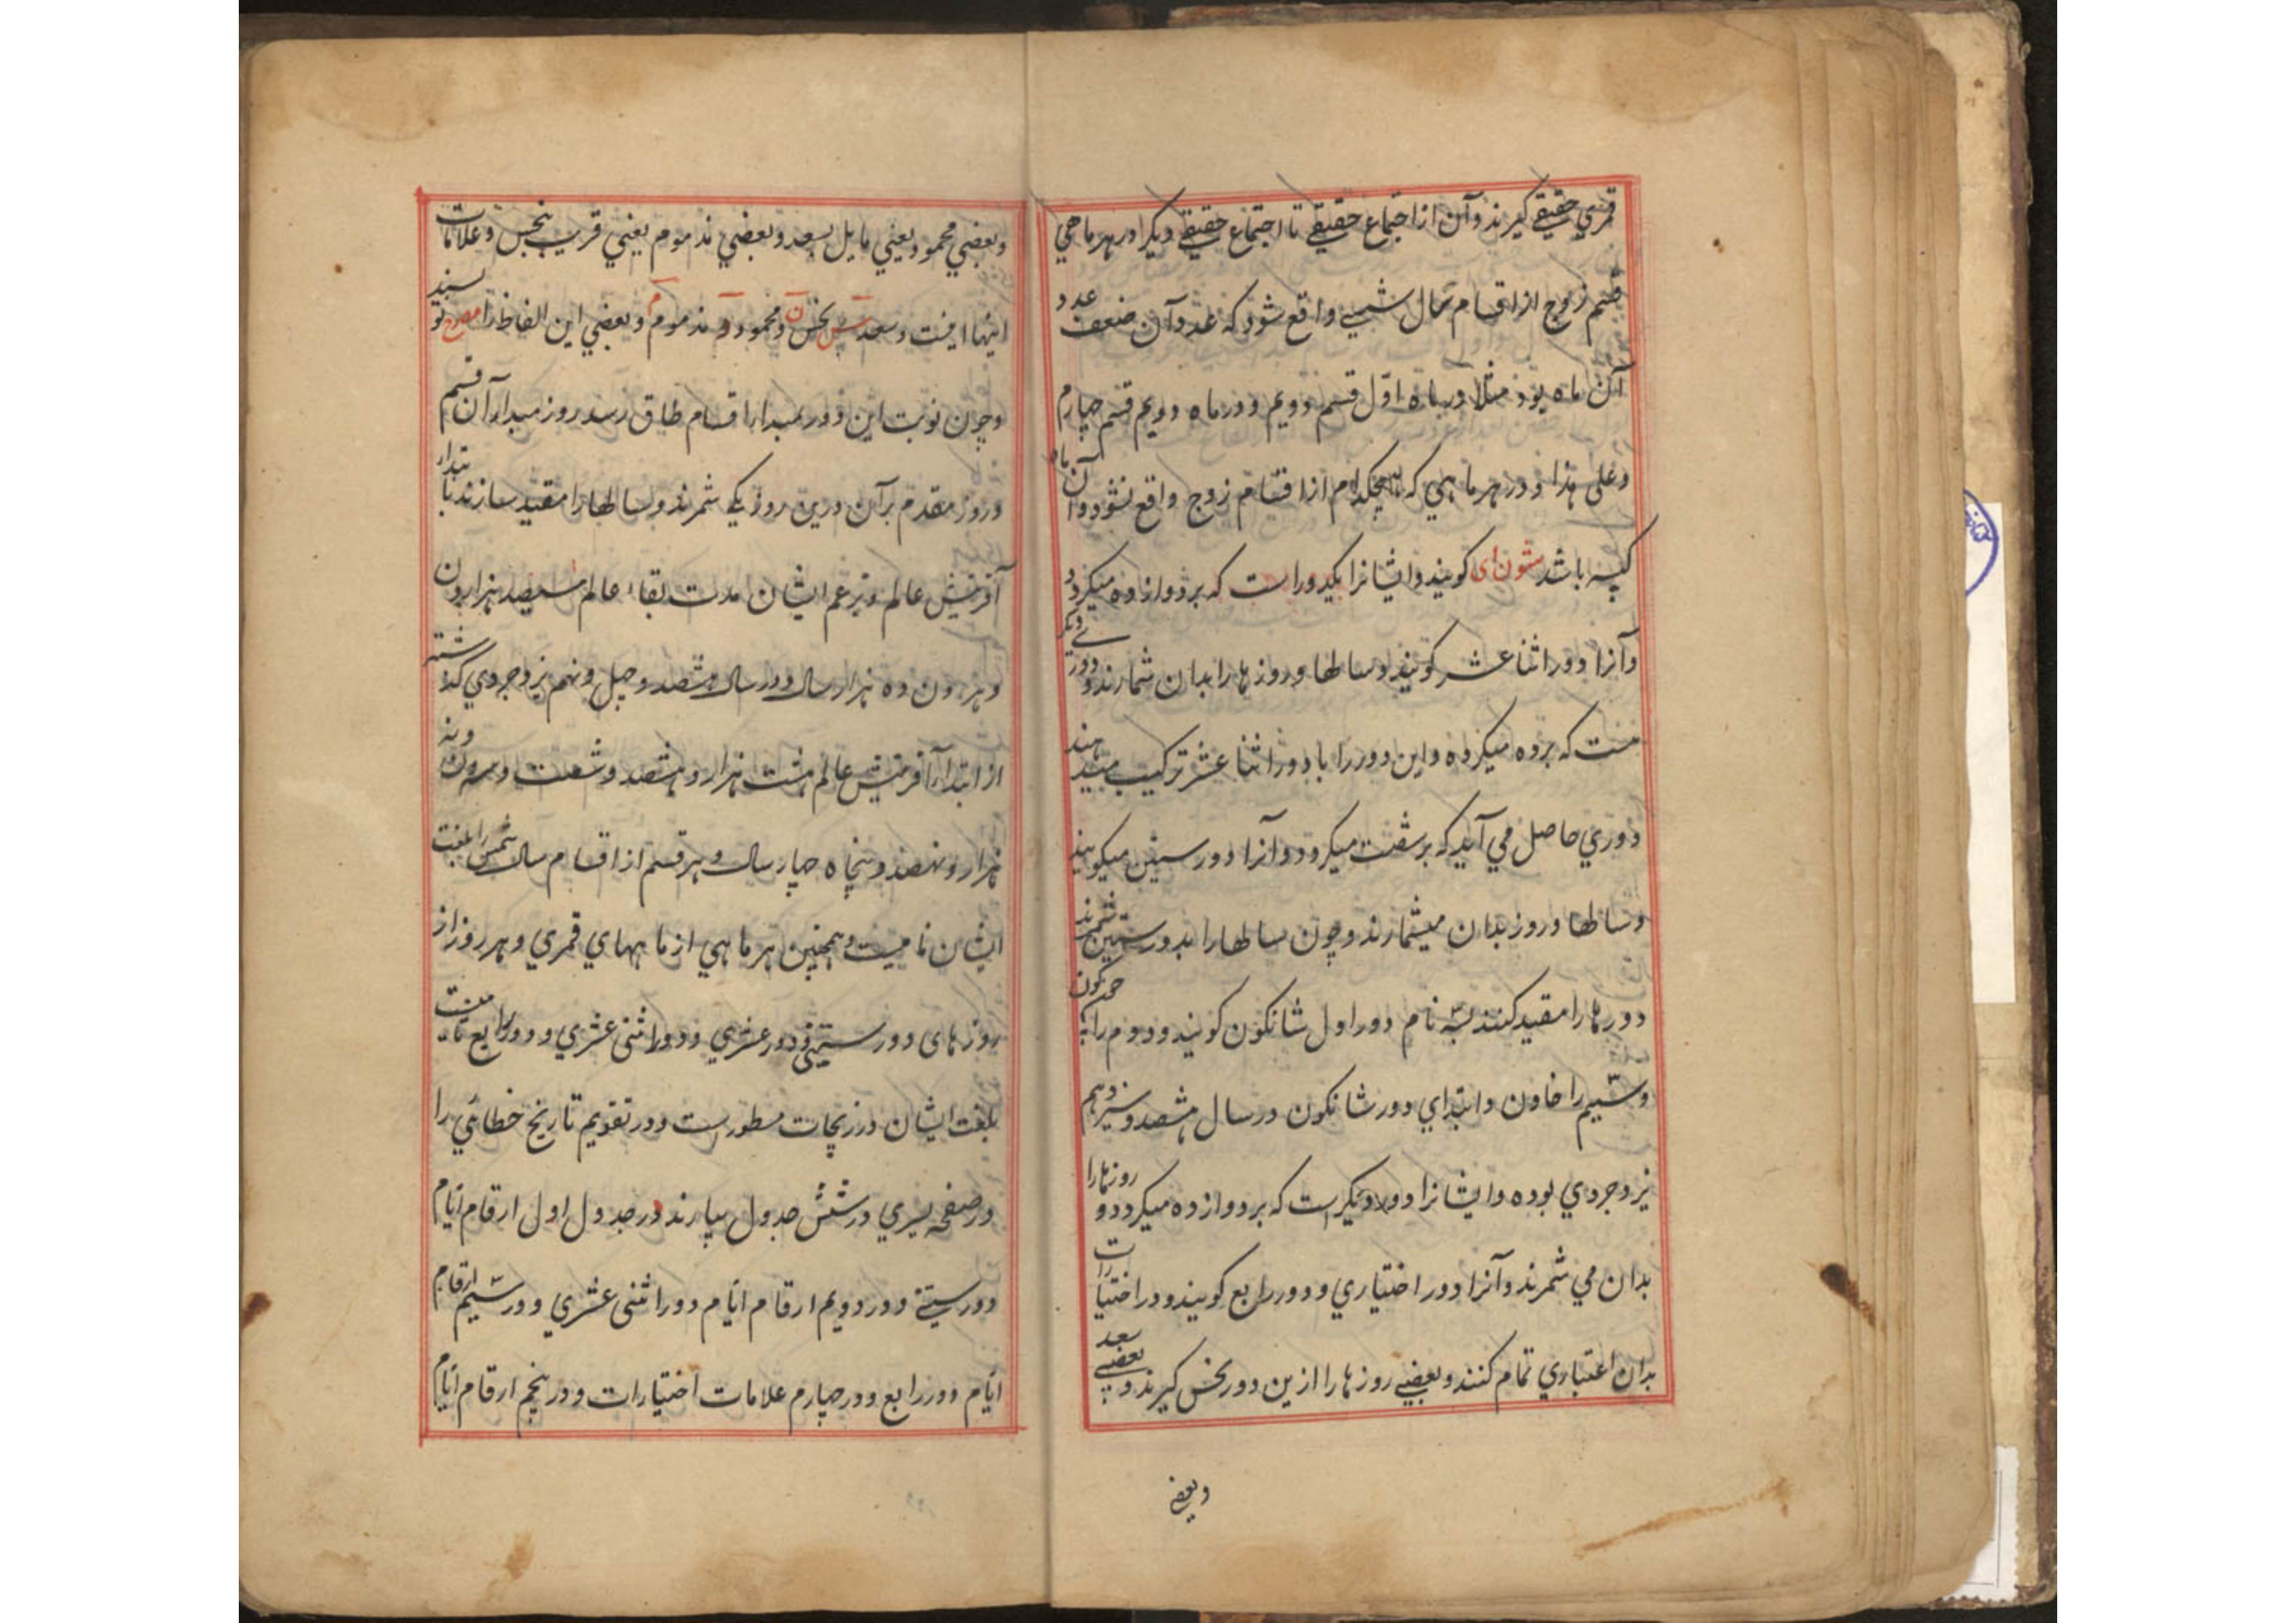 قمري حقيقي گيرند و آن از اجتماع حقيقي تا اجتماع حقيقي ديگر و در هر ماهي
قسم زوج از اقسام سال شمسي واقع شود كه عدد آن ضعف عدد
آن ماه بود مثلا در ماه اول قسم دويم و در ماه دويم قسم چهارم
و على هذا و در هر ماهي كه هيچكدام از اقسام زوج واقع نشود و آن ماه
كبيسه باشد شون اى گويند و ايشانرا يكدور است كه بر دوازده ميگردد
و آنرا دور اثنا عشر گويند و سالها و روزها را بدان شمارند و دوري ديگر
هست كه بر ده ميگردد و اين دور را با دور اثنا عشر تركيب ميدهند
دوري حاصل مي آيد كه بر شصت ميگردد و آنرا دور ستين ميگويند
و سالها و روز بدان ميشمارند و چون سالها را بدور ستين شمرند
دورها را مقيد كنند بسه نام دور اول شانكون گويند و دوم را جونكون
و سيم را خاون و ابتداي دور شانكون در سال هشتصد و سيزدهم
يزدجردي بوده و ايشانرا دور ديگر است كه بر دوازده ميگردد و روزها را
بدان مي شمرند و آنرا دور اختياري و دور رابع گويند و در اختيارات
بدان اعتباري تمام كنند و بعضي روزها را ازين دور نحس گيرند و بعضي سعد
وبعضي
و بعضي محمود يعني مايل بسعد و بعضي مذموم يعني قريب بنحس و علامات
اينها اينست و سعد س نحس ن و محمود و مذموم م و بعضي اين الفاظ را مصرح نويسند
و چون نوبت اين دور بمبدأ اقسام طاق رسد روز مبدأ آن قسم
و روز مقدم بر آن درين روز يكي شمرند و سالها را مقيد سازند بابتداء
آفرينش عالم و بزعم ايشان مدت بقاء عالم سيصد هزار ون
و هر ون ده هزار سال و در سال هشتصد و چهل و نهم يزدجردي گذشته
از ابتداء آفرينش عالم هشت هزار و هشتصد و شصت و سه ون و نه
هزار و نهصد و پنجاه چهار سال و هر قسم از اقسام سال شمس را بلغت
ايشان ناميست و همچنين هر ماهي از ماههاي قمري و هر روز از
روزهاى دور ستيني و دور عشري و دور اثنى عشري و دور رابع نامهاست
بلغت ايشان در زيجات مسطور است و در تقويم تاريخ خطائي را
در صفحه يسري در شش جدول بيارند در جدول اول ارقام ايام
دور ستيني و در دويم ارقام ايام دور اثنى عشري و در سيم ارقام
ايام دور رابع و در چهارم علامات اختيارات و در پنجم ارقام ايام